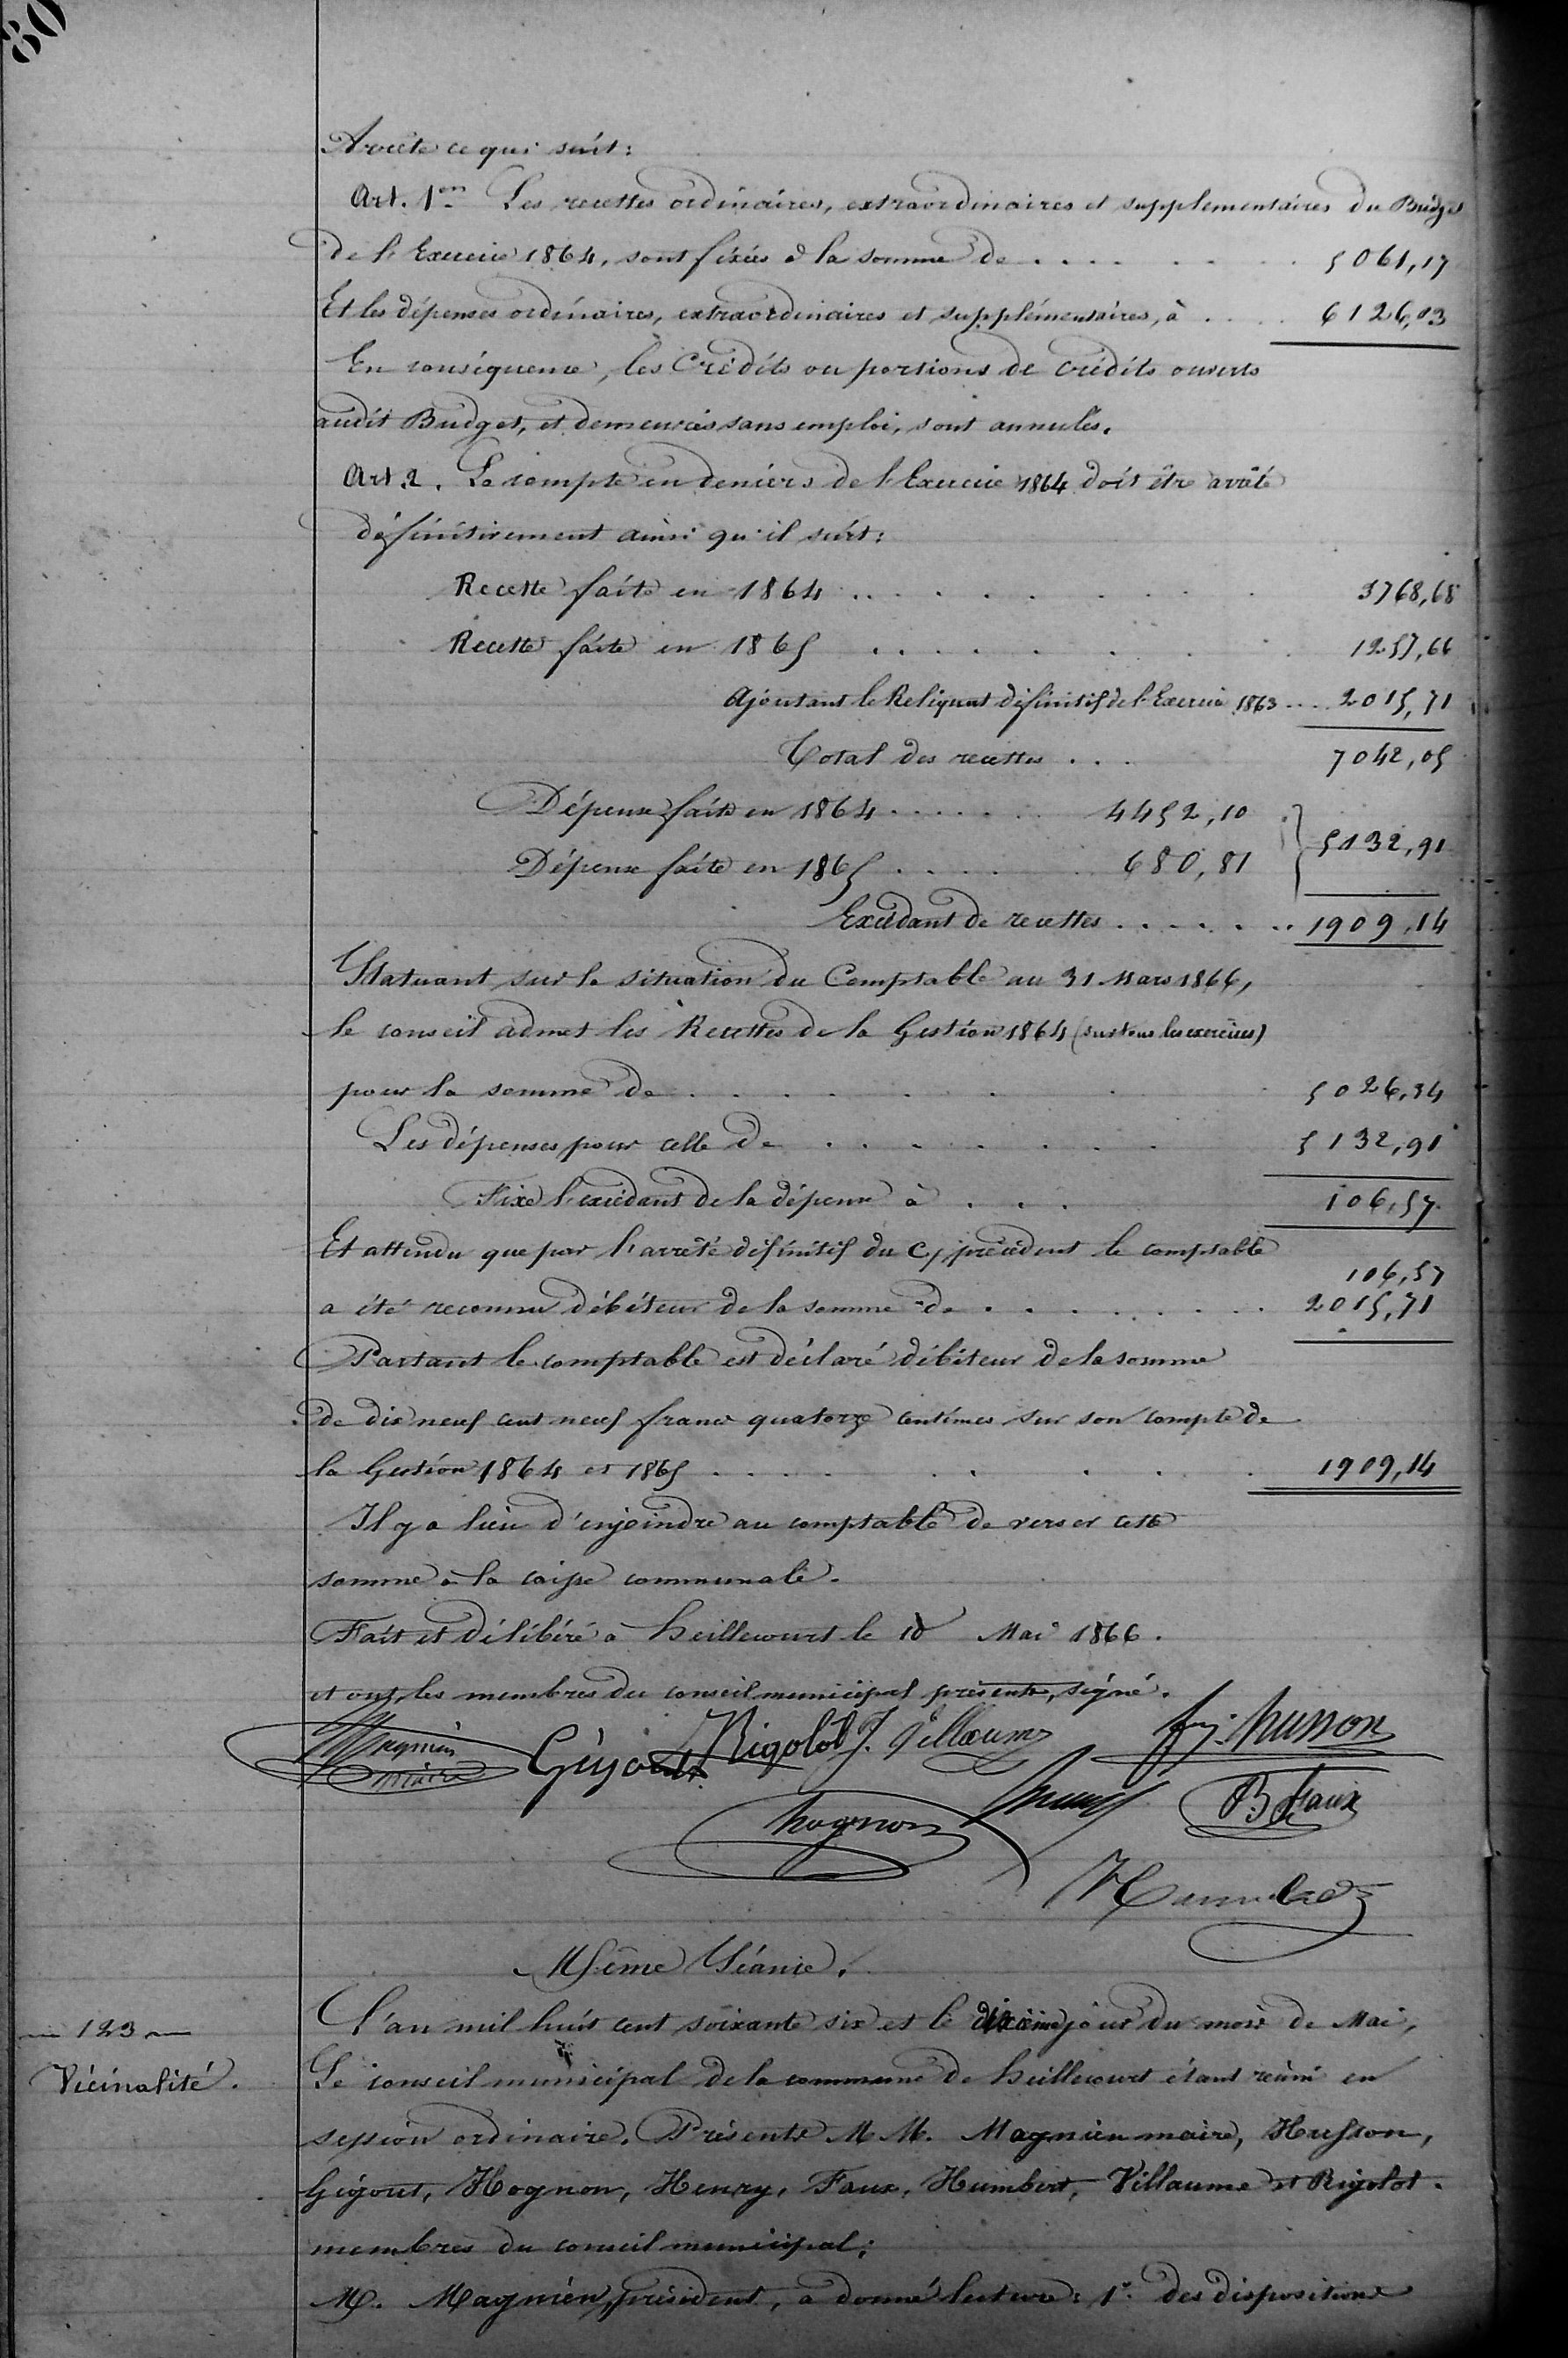 80
Arrête ce qui suit:
Art. 1er Les recettes ordinaires, extraordinaires et supplementaires du Budget
de l'Exercice 1864, sont fixées à la somme de . . . . . . . 5061,17
Et les dépenses ordinaires, extraordinaires et supplémentaires, à . . . . 6126,03
En conséquence, les Crédits ou portions de crédits ouverts
audit Budget, et demeurés sans emploi, sont annulés.
Art. 2. Le compte en deniers de l'Exercice 1864 doit être arrêté
définitivement ainsi qu'il suit:
Recette faite en 1864 . . . . . . . . 3768,68
Recette faite en 1865 . . . . . . . . 1257,66
Ajoutant le Reliquat définitif de l'Exercice 1863 . . . . 2015,71
Total des recettes . . . 7042,05
Dépense faite en 1864 . . . . . . 4452,10
5132,91
Dépense faite en 1865 . . . . . 680,81
Excédant de recettes . . . . . . . 1909,14
Statuant sur la situation du Comptable au 31 Mars 1866,
le conseil admet les Recettes de la Gestion 1864 (sur tous les exercices)
pour la somme de . . . . . . 5026,34
Les dépenses pour celle de . . . . . . . 5132,91
Fixe l'excédant de la dépense à . . . 106,57
Et attendu que par l'arrêté définitif du C/ précédent le comptable
106,57
a été reconnu débiteur de la somme de . . . . . . . . 2015,71
Partant le comptable est déclaré débiteur de la somme
de dix neuf cent neuf francs quatorze centimes sur son compte de
la Gestion 1864 et 1865 . . . . . . . 1909,14
Il y a lieu d'enjoindre au comptable de verser cette
somme à la caisse communale.
Fait et délibéré à heillecourt le 10 Mai 1866.
et ont, les membres du conseil municipal présents, signé.
Magnien Gigout Rigolot J. Villaume Husson
maire
hognon Henry B Faux
Humbert
Même Séance.
L'an mil huit cent soixante six et le dixième jour du mois de Mai,
— 123 —
Le conseil municipal de la commune de heillecourt étant réuni en
Vicinalité.
session ordinaire. Présents M M. Magnien maire, Husson,
Gigout, Hognon, Henry, Faux, Humbert, Villaume et Rigolot.
membres du conseil municipal;
M. Magnien, président, a donné lecture: 1° des dispositions